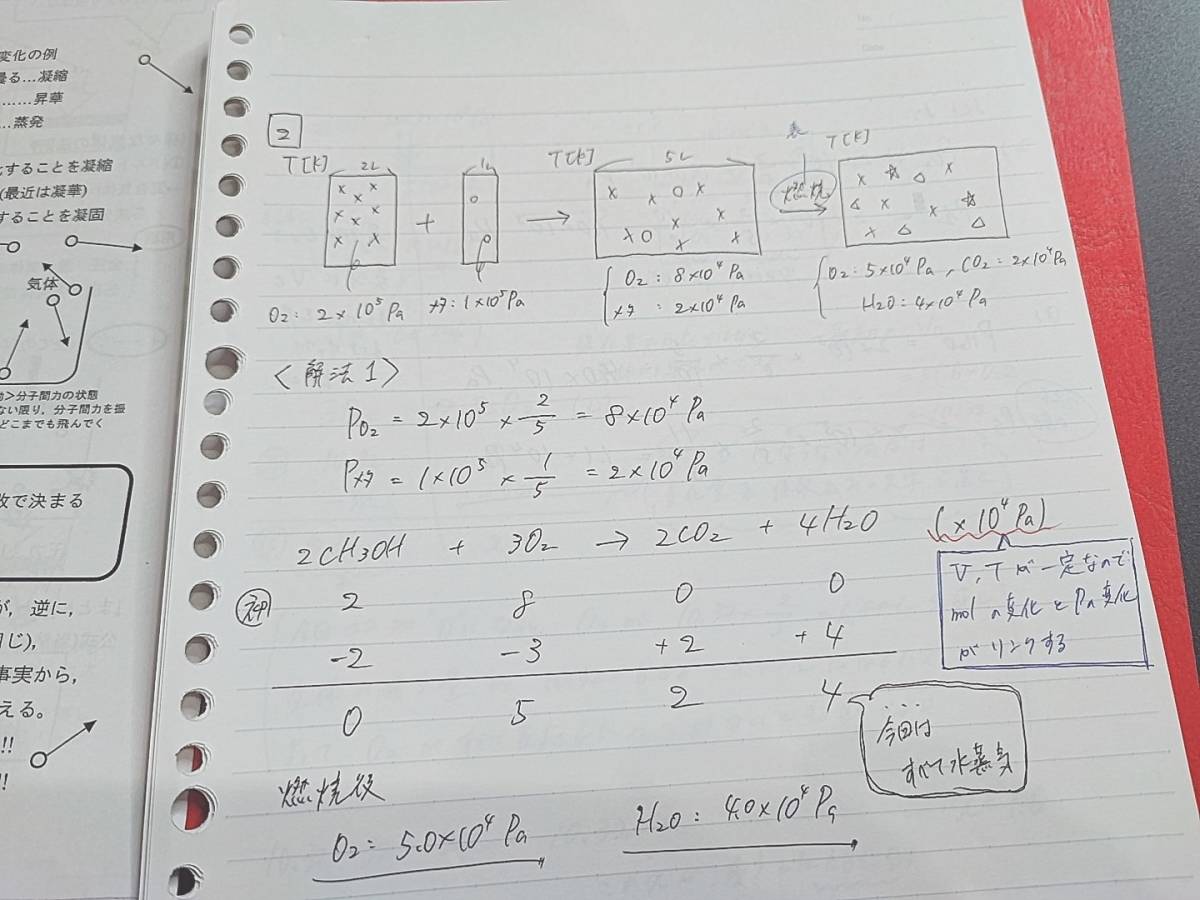 変化の例
…凝縮
……昇華
…蒸発
することを凝縮
(最近は凝華)
することを凝固
気体
分子間力の状態
ない限り，分子間力を振
どこまでも飛んでく
数で決まる
が，逆に，
同じ)，
事実から，
える。
!!
!!
2
T[K] 2L 1L T[K] 5L T[K]
+ → 燃焼 →
O2 : 2×10⁵Pa メタ : 1×10⁵Pa
O2 : 8×10⁴ Pa
メタ : 2×10⁴ Pa
O2 : 5×10⁴Pa , CO2 = 2×10⁴Pa
H2O = 4×10⁴Pa
〈解法1〉
PO2 = 2×10⁵ × 2/5 = 8×10⁴ Pa
Pメタ = 1×10⁵ × 1/5 = 2×10⁴ Pa
2CH3OH + 3O2 → 2CO2 + 4H2O (×10⁴ Pa)
初 2 8 0 0
-2 -3 +2 +4
0 5 2 4
V, Tが一定なので
molの変化とPa変化
がリンクする
今回は
すべて水蒸気
燃焼後
O2 : 5.0×10⁴ Pa H2O : 4.0×10⁴ Pa